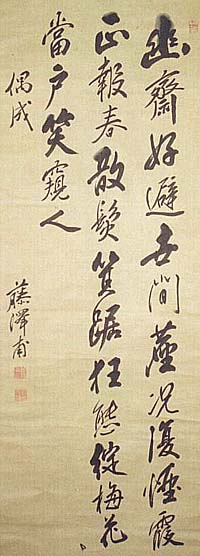 幽齋好避世間塵況復煙霞
正報春散髮箕踞狂態梅花
當戸笑窺人
偶成
藤澤甫